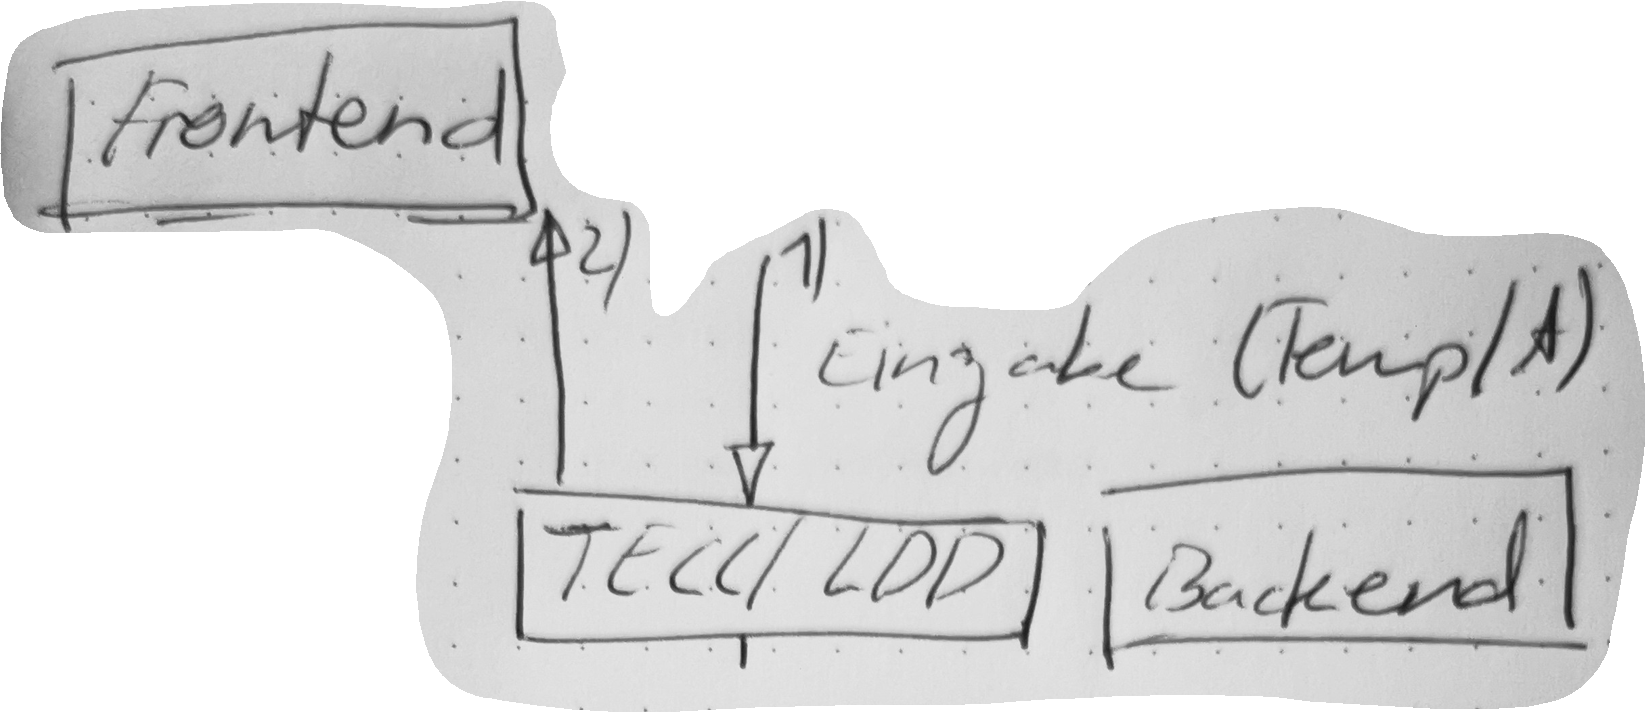 Frontend
2) 1)
Eingabe (Temp/A)
TECC/ LDD
Backend